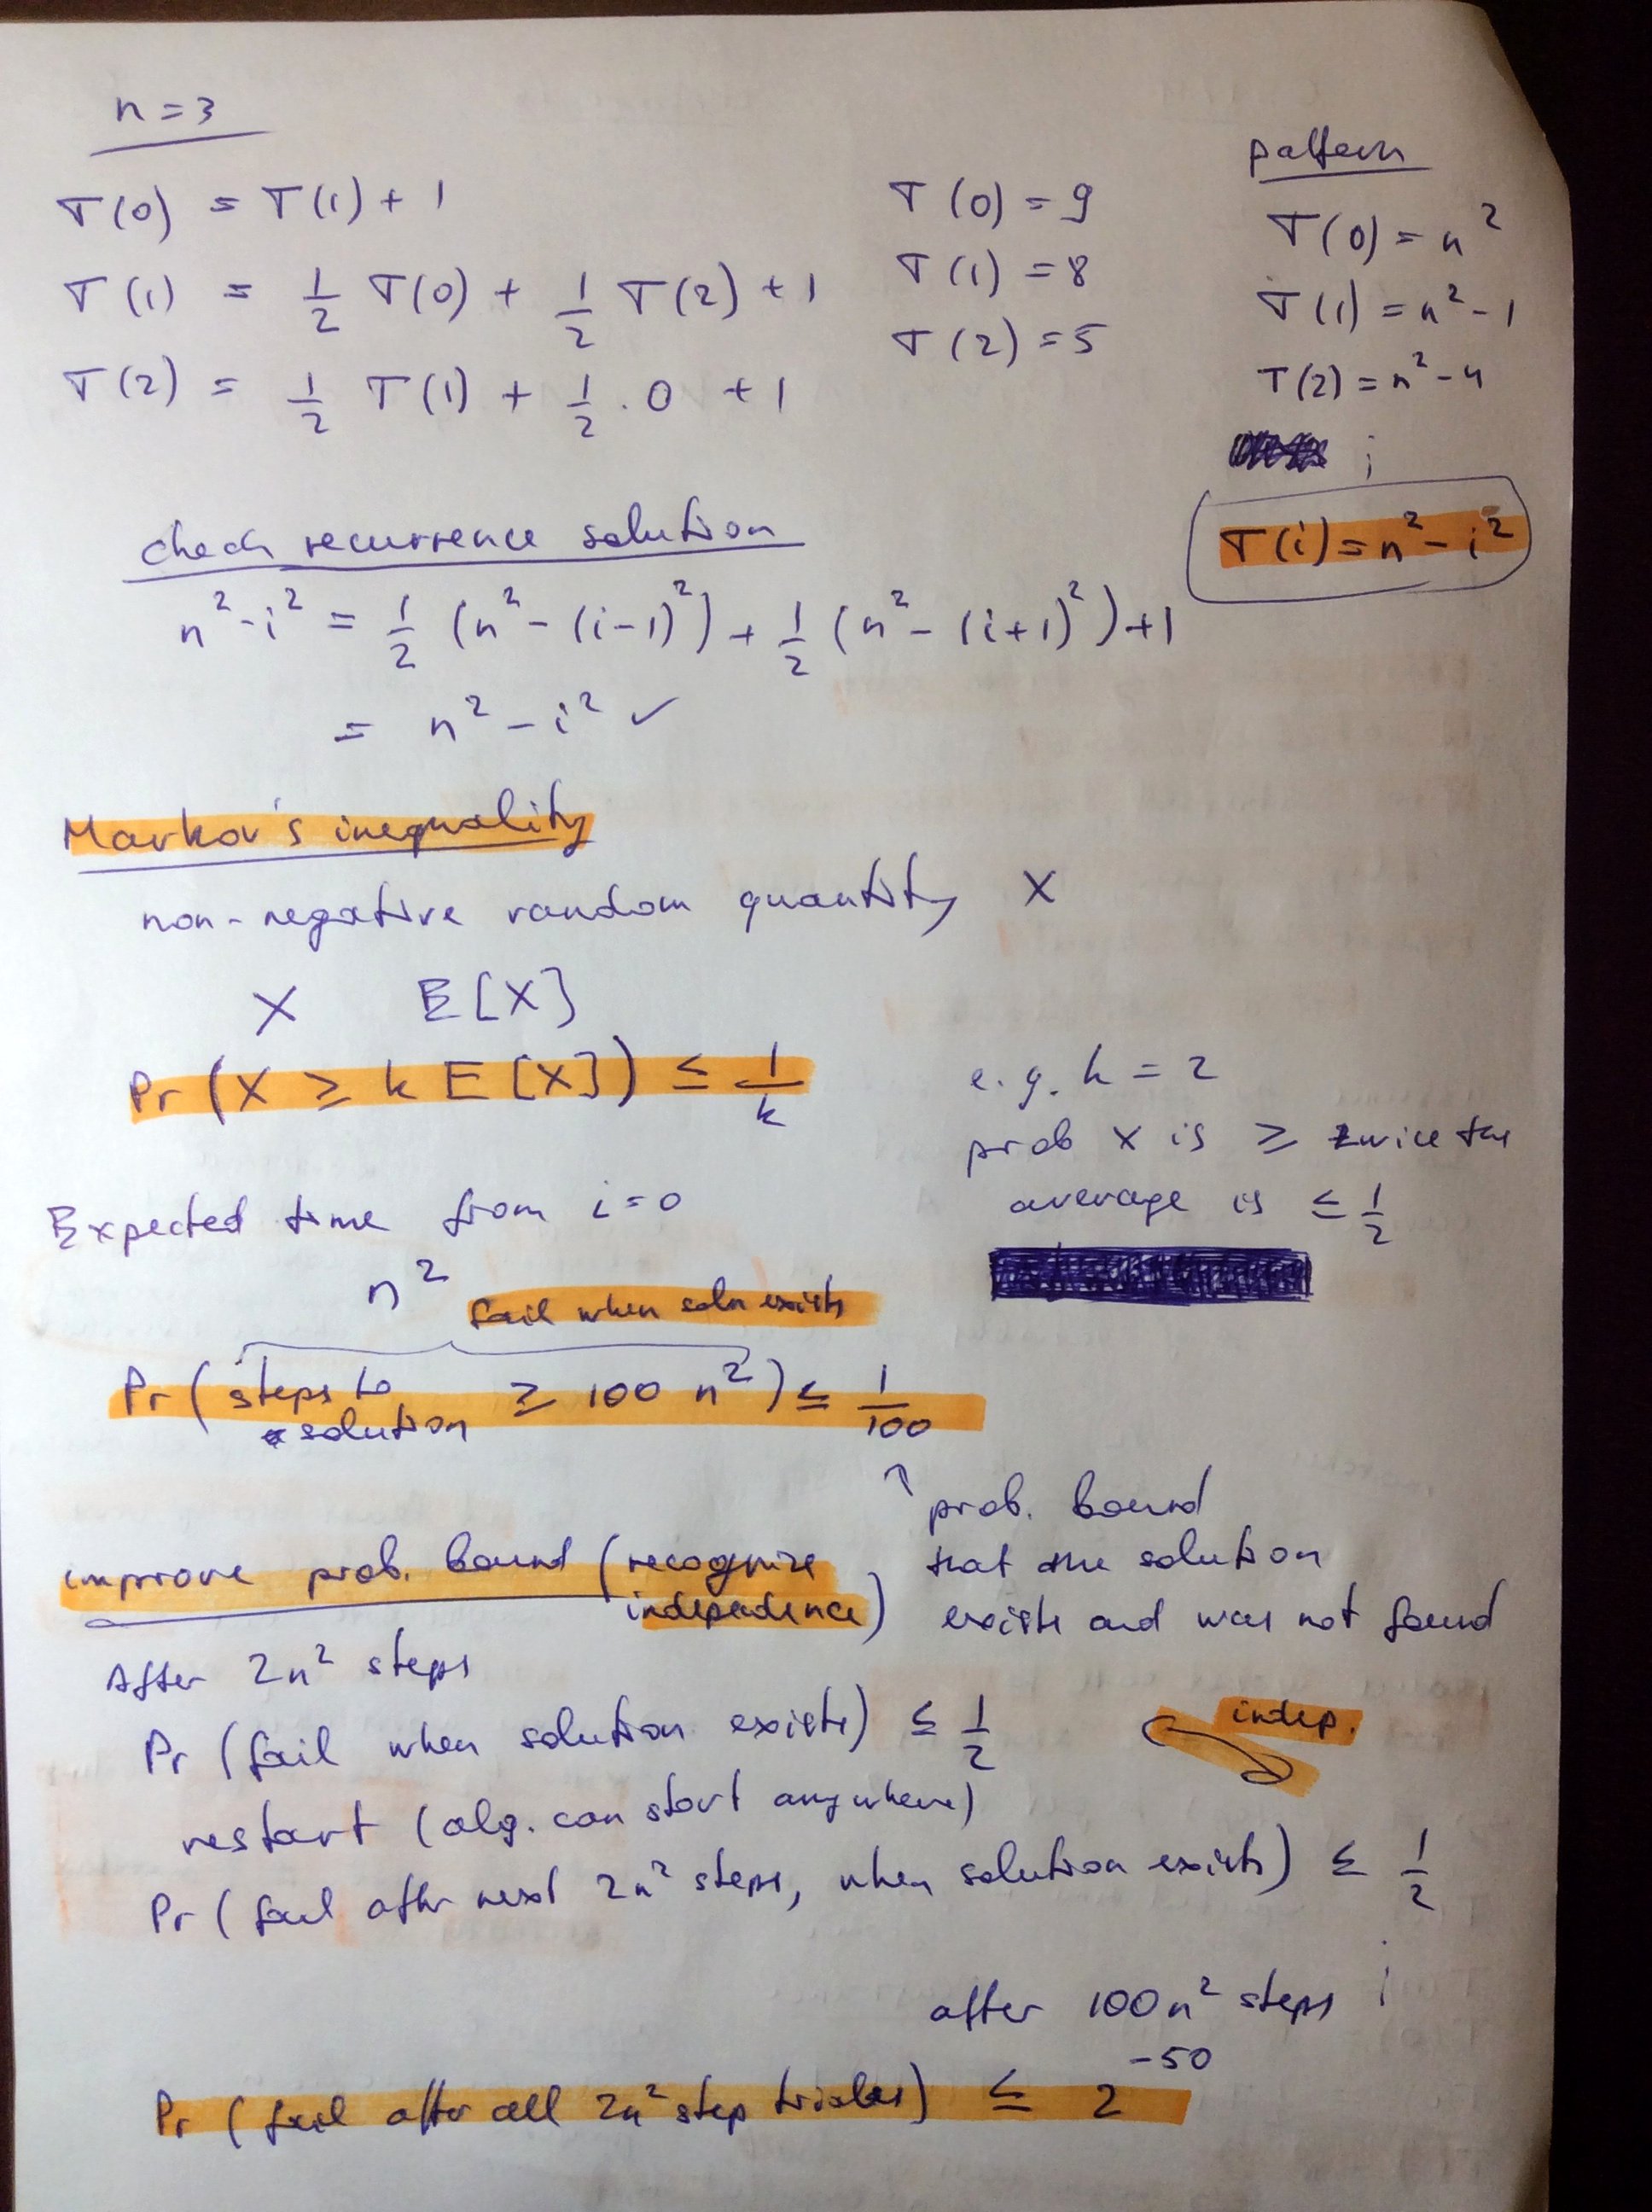 n = 3
T(0) = T(1) + 1
T(1) = 1/2 T(0) + 1/2 T(2) + 1
T(2) = 1/2 T(1) + 1/2 . 0 + 1
T(0) = 9
T(1) = 8
T(2) = 5
pattern
T(0) = n²
T(1) = n² - 1
T(2) = n² - 4
T(i) = n² - i²
check recurrence solution
n² - i² = 1/2 (n² - (i-1)²) + 1/2 (n² - (i+1)²) + 1
= n² - i² ✓
Markov's inequality
non-negative random quantity X
X E[X]
Pr(X ≥ k E[X]) ≤ 1/k
e.g. k = 2
prob X is ≥ twice the
average is ≤ 1/2
Expected time from i=0
n²
fail when soln exists
Pr(steps to solution ≥ 100 n²) ≤ 1/100
↑ prob. bound
that the solution
exists and was not found
improve prob. bound (recognize
independence)
After 2n² steps
Pr (fail when solution exists) ≤ 1/2
indep.
restart (alg. can start anywhere)
Pr (fail after next 2n² steps, when solution exists) ≤ 1/2
after 100n² steps
Pr (fail after all 2n² step trials) ≤ 2⁻⁵⁰